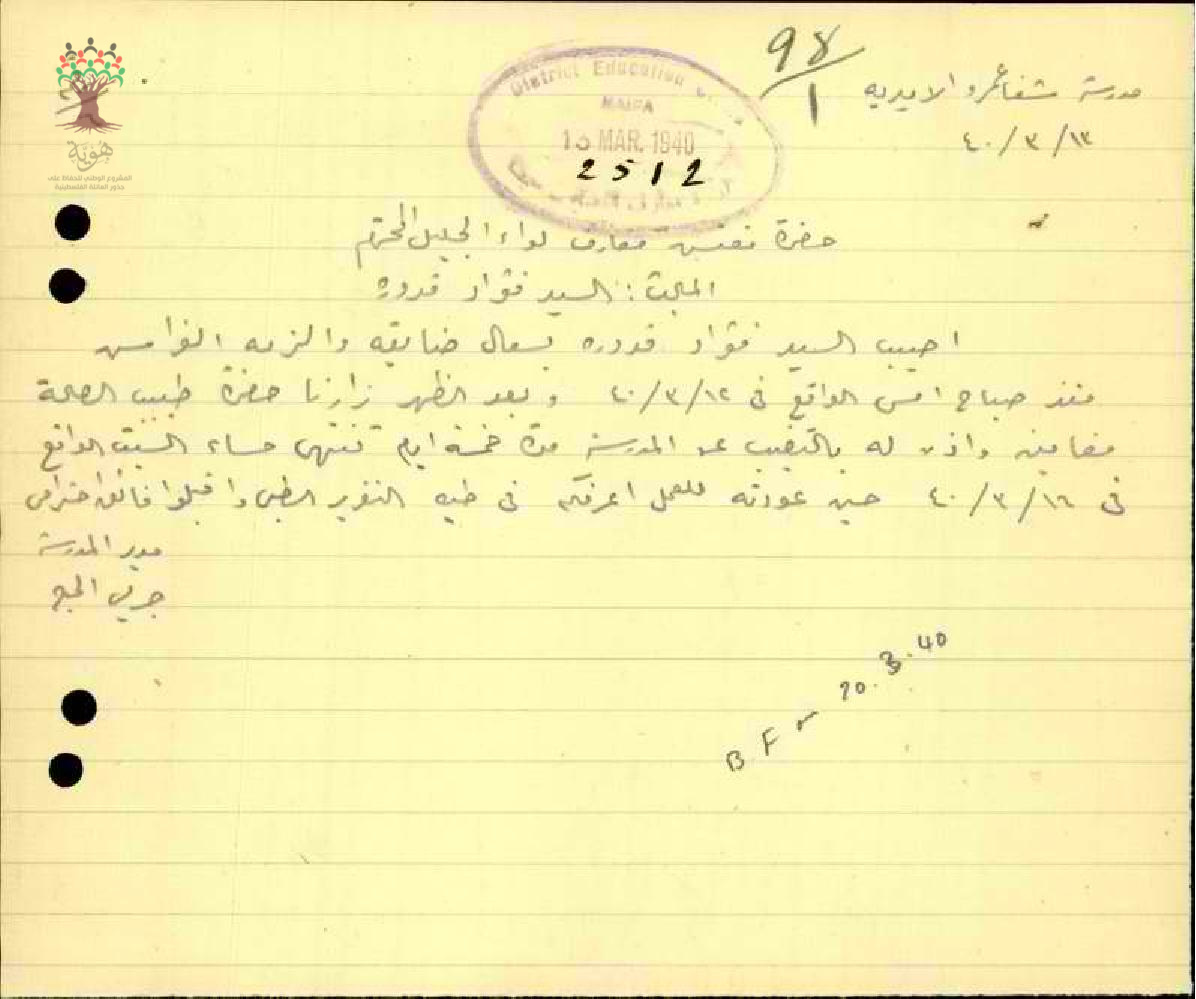 هوية
المشروع الوطني للحفاظ على
جذور العائلة الفلسطينية
98/1
مدرسة شفاعمرو الاميرية
٤٠/٣/١٣
District Education
HAIFA
13 MAR. 1940
2512
حضرة مفتش معارف لواء الجليل المحترم
المبحث: السيد فؤاد قدوره
اصيب السيد فؤاد قدوره بسعال ضايقه والزمه الفراش
منذ صباح امس الواقع في ٤٠/٣/١٢ وبعد الظهر زارنا حضرة طبيب الصحة
فعاينه واذن له بالتغيب عن المدرسة مدة خمسة ايام تنتهي مساء السبت الواقع
في ٤٠/٣/١٦ حين عودته للعمل اعرفكم في طيه التقرير الطبي واقبلوا فائق احترامي
مدير المدرسة
B. F 20.3.40